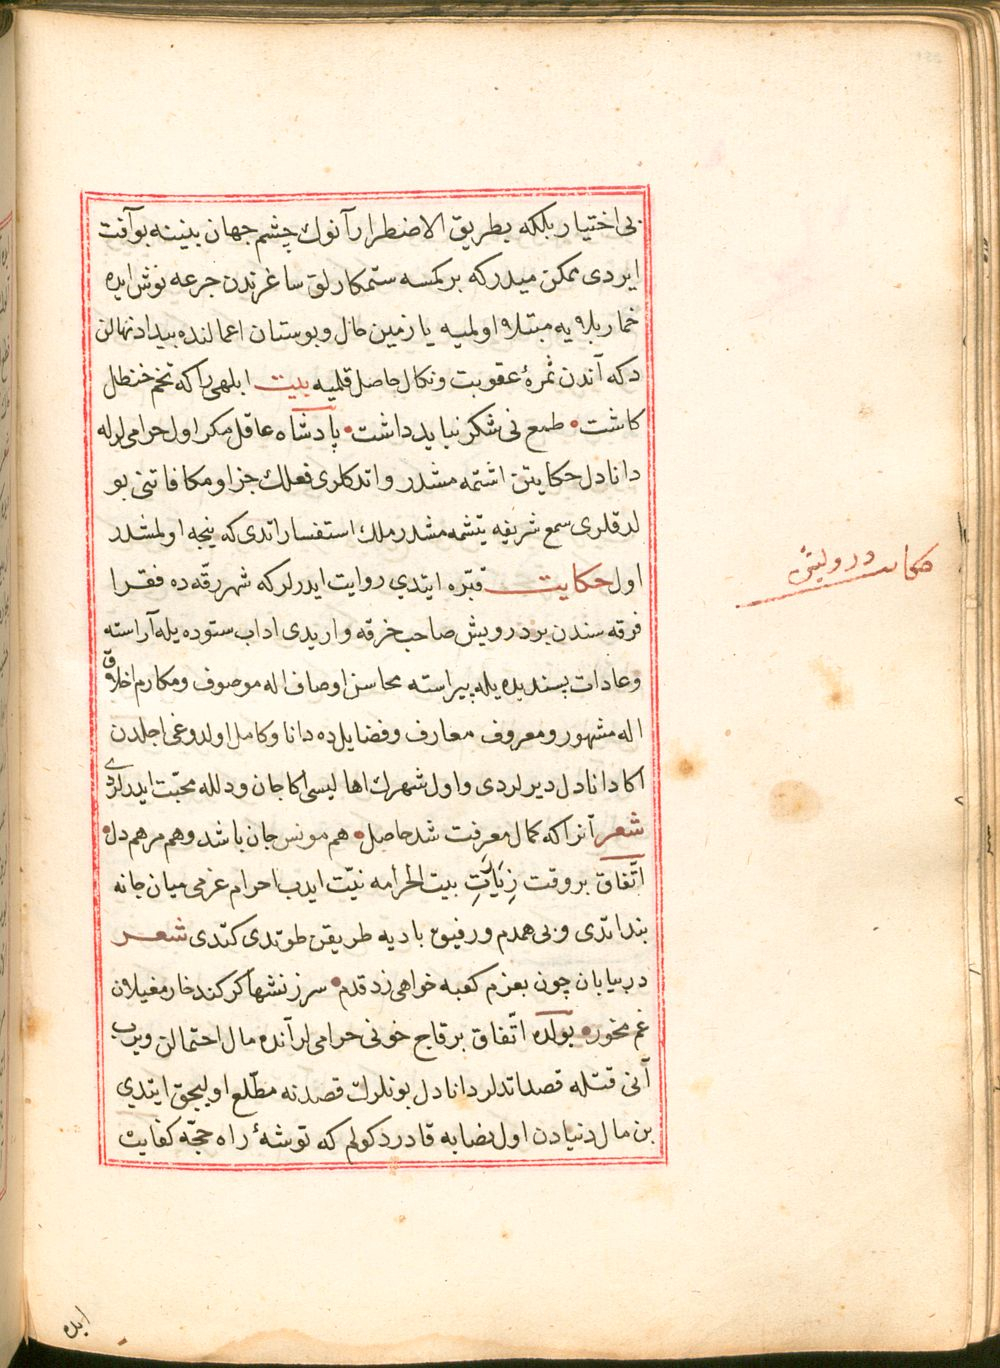 بی اختیار بلکه بطریق الاضطرار آنوك چشم جهان بینینه بو آفت
ایردی ممکن میدر که بر کمسه ستمکارلق ساغرندن جرعه نوش ایده
خمار بلایه مبتلا اولمیه یا زمین حال و بوستان اعمالنده بیداد نهالن
دکه آندن ثمرهٔ عقوبت و نکال حاصل قلمیه بیت ابلهی را که تخم خنظل
کاشت • طمع نی شکر نباید داشت • پادشاه عاقل مکر اول حرامی لرله
دانا دل حکایتن اشتمه مشدر و اتدکلری فعلك جزا و مکافاتنی بو
لدقلری سمع شریفه یتشمه مشدر ملك استفسار اتدی که نیجه اولمشدر
اول حکایت قبّره ایتدی روایت ایدرلر که شهر رقّه ده فقرا
فرقه سندن بر درویش صاحب خرقه وار یدی اداب ستوده یله آراسته
و عادات پسندیده یله پیراسته محاسن اوصاف اله موصوف و مکارم اخلاق
اله مشهور و معروف معارف و فضایل ده دانا و کامل اولدوغی اجلدن
اکا دانا دل دیرلردی و اول شهرك اهالیسی اکا جان و دلله محبّت ایدرلردی
شعر آنرا که کمال معرفت شد حاصل • هم مونس جان باشد و هم مرهم دل •
اتّفاق بر وقت زِیَارَتِ بیت الحرامه نیّت ایدب احرام عزمی میان جانه
بند اتدی و بی همدم و رفیق بادیه طریقن طوتدی کتدی شعر
در بیابان چون بعزم کعبه خواهی زد قدم • سرزنشها کر کند خار مغیلان
غم مخور • یولده اتّفاق بر قاچ خونی حرامی لر آنده مال احتمالن ویرب
آنی قتله قصد اتدلر دانا دل بونلرك قصدنه مطّلع اولیجق ایتدي
بن مال دنیادن اول بضایه قادر دکولم که توشهٔ راه حجّه کفایت
حکایت درویش
ایده